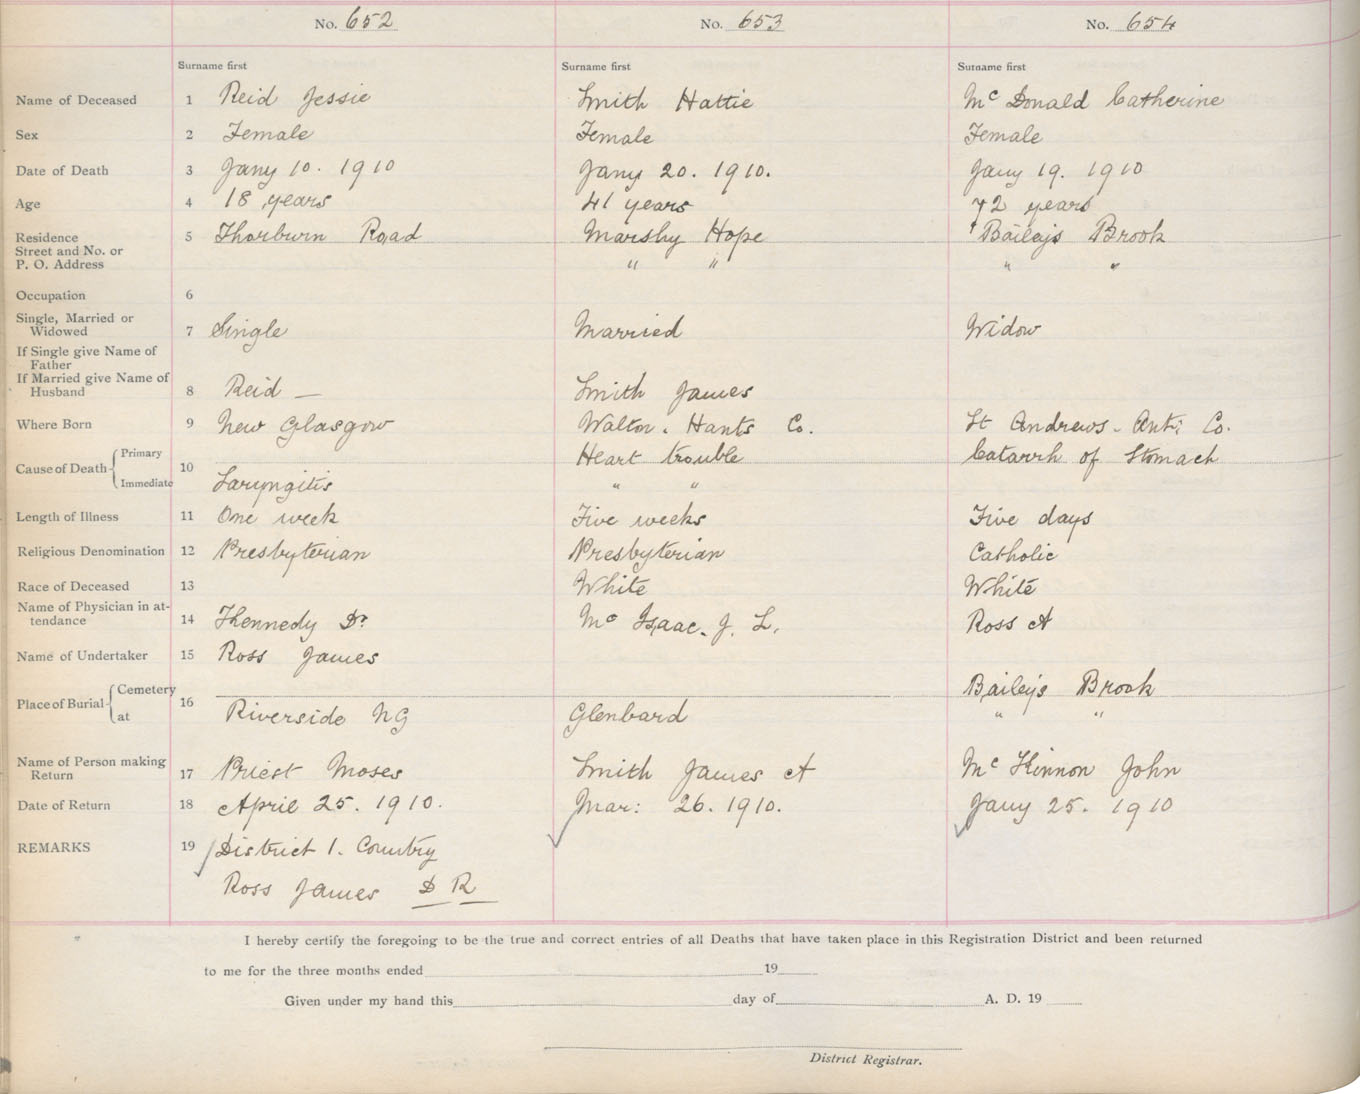 No. 652 No. 653 No. 654
Surname first Surname first Surname first
Name of Deceased 1 Reid Jessie Smith Hattie Mc Donald Catherine
Sex 2 Female Female Female
Date of Death 3 Jany 10. 1910 Jany 20. 1910. Jany 19. 1910
Age 4 18 years 41 years 72 years
Residence 5 Thorburn Road Marshy Hope Bailey's Brook
Street and No. or
P. O. Address " " " "
Occupation 6
Single, Married or
Widowed 7 Single Married Widow
If Single give Name of
Father
If Married give Name of
Husband 8 Reid — Smith James
Where Born 9 New Glasgow Walton. Hants Co. St Andrews. Ant: Co.
Cause of Death Primary 10 Heart trouble Catarrh of Stomach
Immediate Laryngitis " "
Length of Illness 11 One week Five weeks Five days
Religious Denomination 12 Presbyterian Presbyterian Catholic
Race of Deceased 13 White White
Name of Physician in at-
tendance 14 Kennedy Dr Mc Isaac. J. L. Ross A
Name of Undertaker 15 Ross James
Place of Burial Cemetery 16 Bailey's Brook
at Riverside NG Glenbard " "
Name of Person making
Return 17 Priest Moses Smith James A Mc Kinnon John
Date of Return 18 April 25. 1910. Mar: 26. 1910. Jany 25. 1910
REMARKS 19 District 1. Country
Ross James D R
I hereby certify the foregoing to be the true and correct entries of all Deaths that have taken place in this Registration District and been returned
to me for the three months ended 19
Given under my hand this day of A. D. 19
District Registrar.